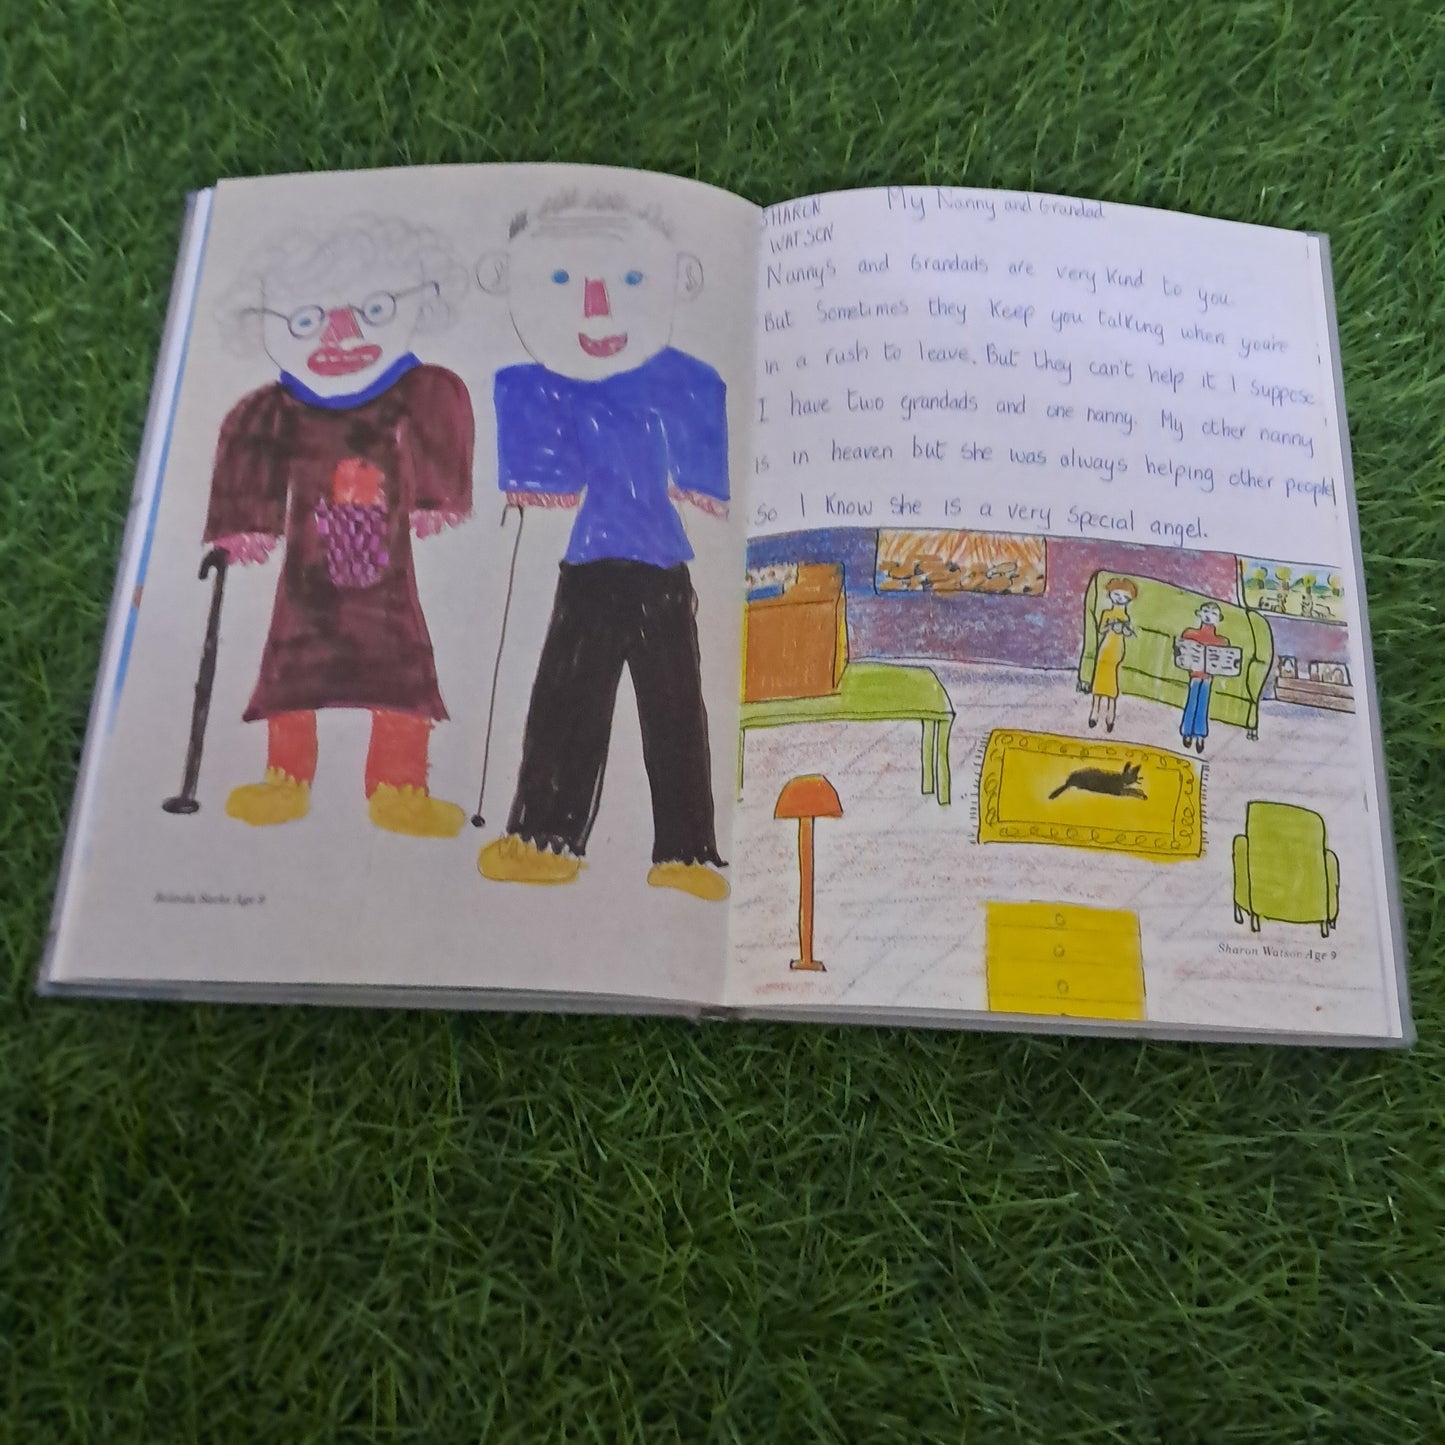 Age 9
SHARON
WATSON
My Nanny and Grandad
Nanny's and Grandads are very kind to you
But Sometimes they keep you talking when you're
in a rush to leave. But they can't help it I suppose
I have two grandads and one nanny. My other nanny
is in heaven but she was always helping other people
so I know she is a very special angel.
Sharon Watson Age 9